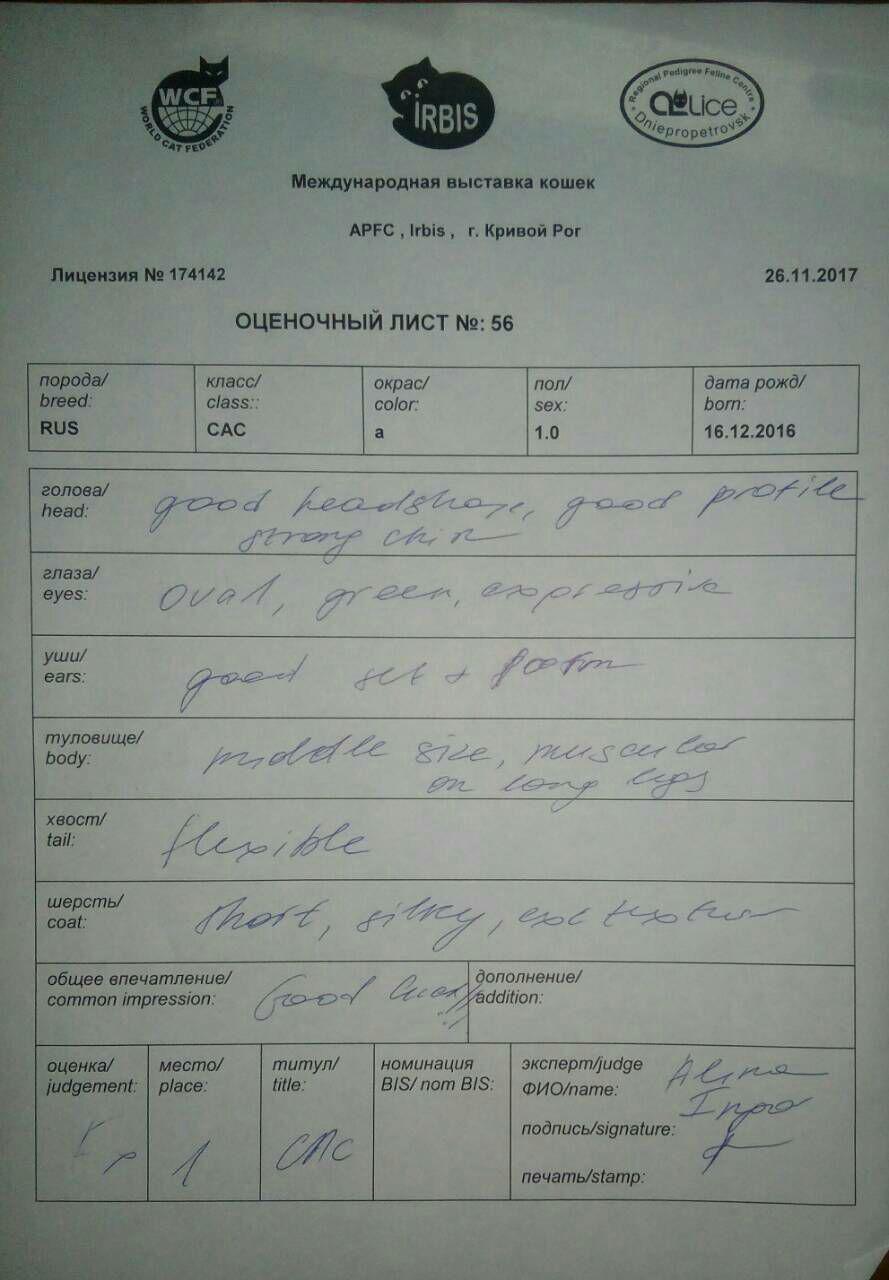 WCF
WORLD CAT FEDERATION
iRBIS
Regional Pedigree Feline Centre
ALice
Dniepropetrovsk
Международная выставка кошек
APFC , Irbis , г. Кривой Рог
Лицензия № 174142
26.11.2017
ОЦЕНОЧНЫЙ ЛИСТ №: 56
порода/
breed:
RUS
класс/
class::
CAC
окрас/
color:
a
пол/
sex:
1.0
дата рожд/
born:
16.12.2016
голова/
head:
good headshape, good profile
strong chin
глаза/
eyes:
oval, green, expressive
уши/
ears:
good set +
туловище/
body:
middle size, muscular
on long legs
хвост/
tail:
flexible
шерсть/
coat:
short, silky, texture
общее впечатление/
common impression:
Good luck!!
дополнение/
addition:
оценка/
judgement:
место/
place:
1
титул/
title:
CAC
номинация
BIS/ nom BIS:
эксперт/judge
ФИО/name:
Alina
подпись/signature:
печать/stamp: